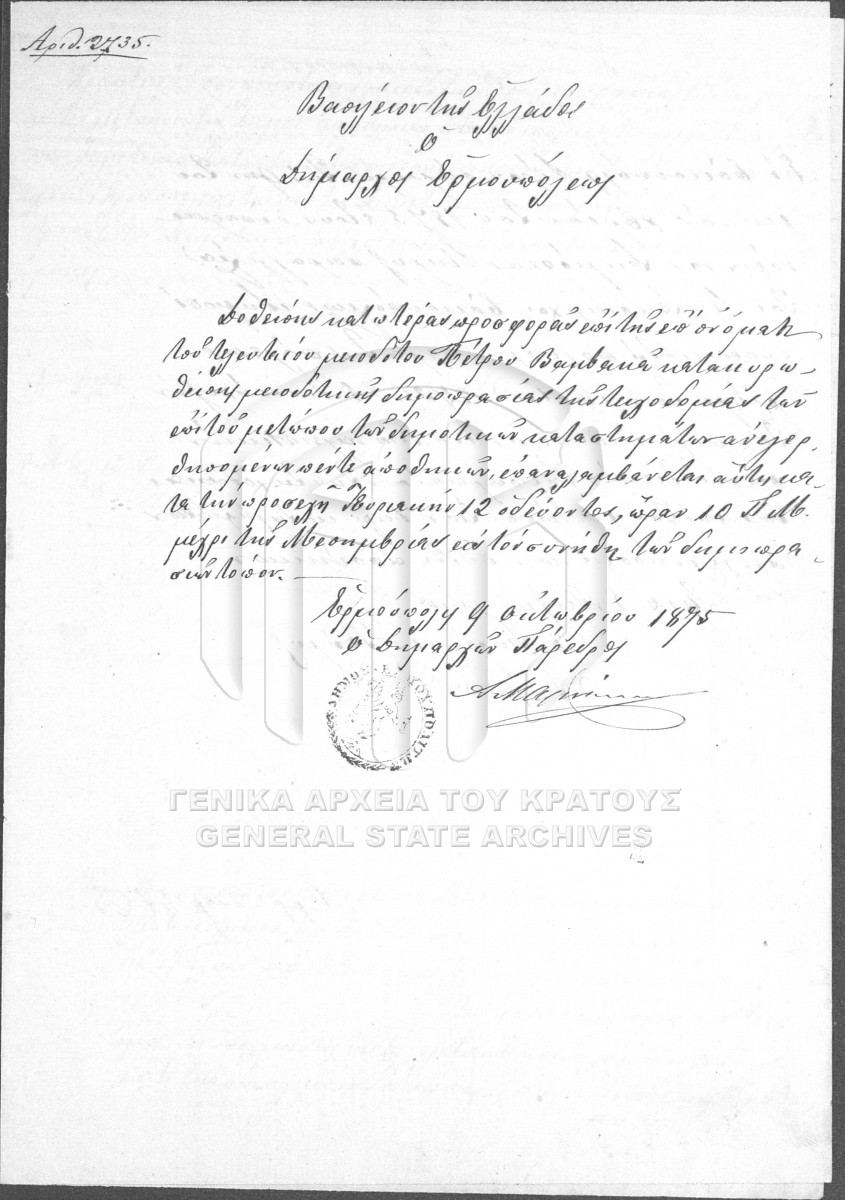 Αριθ. 2735.
Βασίλειον της Ελλάδος
Ο
Δήμαρχος Ερμουπόλεως
Δοθείσης κατωτέρας προσφοράς επί της επ' ονόματι
του τελευταίου μειοδότου Πέτρου Βαμβακά κατακυρω-
θείσης μειοδοτικής δημοπρασίας της τειχοδομίας των
επί του μετώπου των δημοτικών καταστημάτων ανεγερ-
θησομένων πέντε αποθηκών, επαναλαμβάνεται αύτη κα-
τά την προσεχή Κυριακήν 12 οδεύοντος, ώραν 10 Π.Μ.
μέχρι της Μεσημβρίας εις τον συνήθη των δημοπρα-
σιών τόπον.
Ερμούπολη 9 Οκτωβρίου 1875
Ο Δημαρχών Πάρεδρος
ΓΕΝΙΚΑ ΑΡΧΕΙΑ ΤΟΥ ΚΡΑΤΟΥΣ
GENERAL STATE ARCHIVES